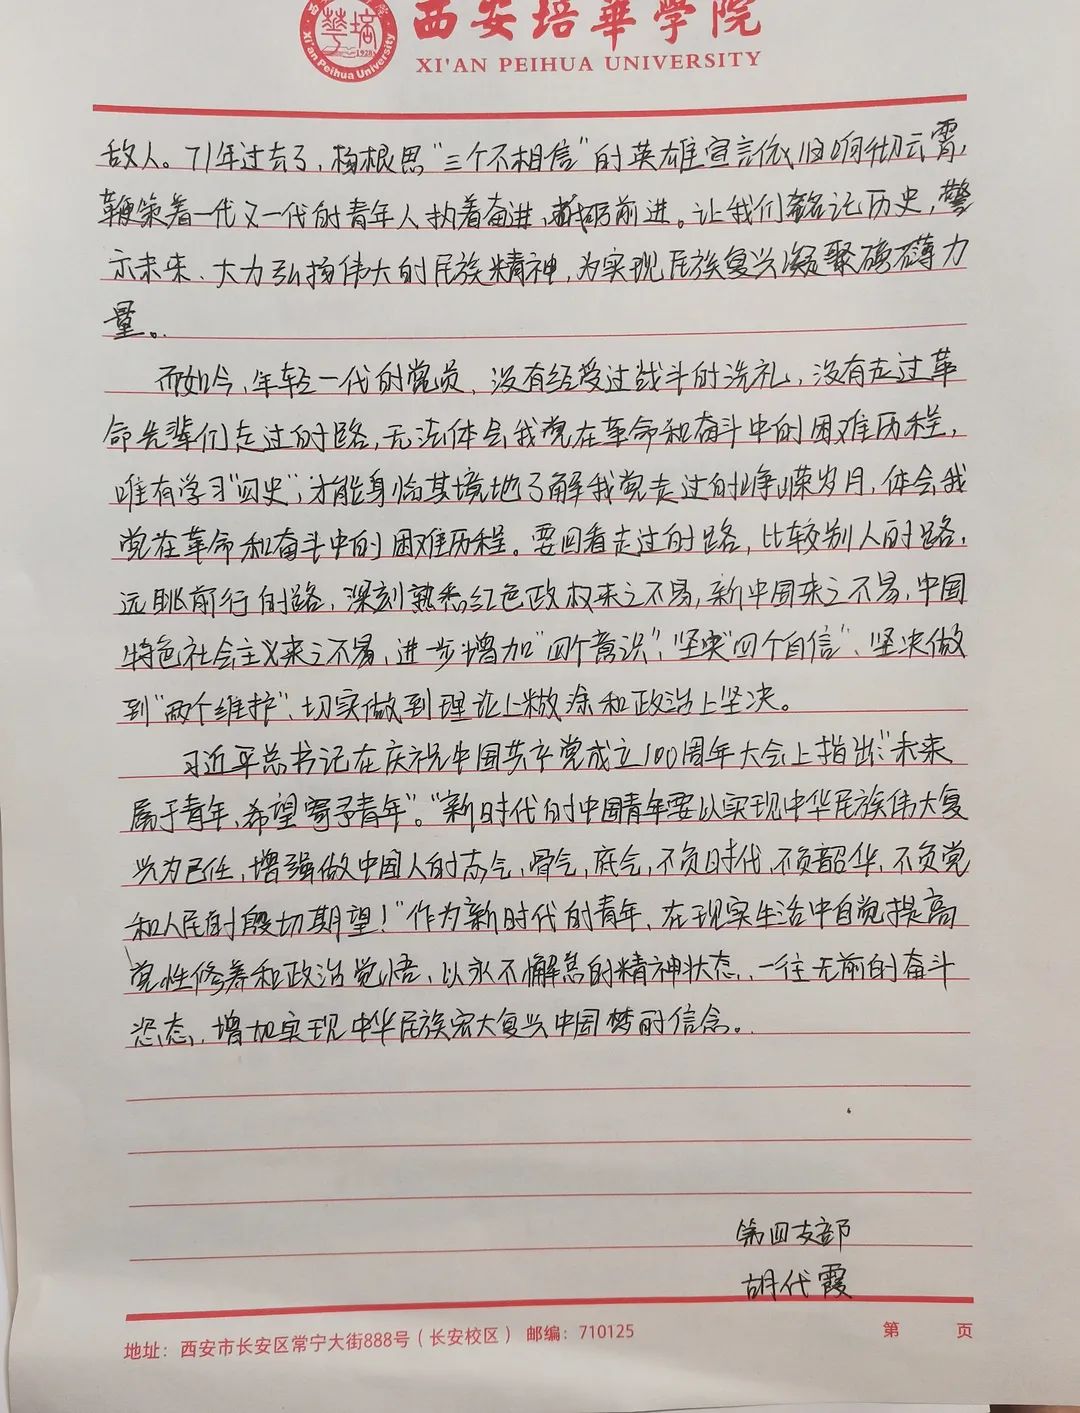 西安培華学院
XI'AN PEIHUA UNIVERSITY
敌人。71年过去了，杨根思“三个不相信”的英雄宣言依旧响彻云霄，
鞭策着一代又一代的青年人执着奋进，砥砺前进。让我们铭记历史，警
示未来、大力弘扬伟大的民族精神，为实现民族复兴凝聚磅礴力
量。
而如今，年轻一代的党员，没有经受过战斗的洗礼，没有走过革
命先辈们走过的路，无法体会我党在革命和奋斗中的困难历程，
唯有学习“四史”，才能身临其境地了解我党走过的峥嵘岁月，体会我
党在革命和奋斗中的困难历程。要回看走过的路，比较别人的路，
远眺前行的路，深刻熟悉红色政权来之不易，新中国来之不易，中国
特色社会主义来之不易，进步增加“四个意识”，坚突“四个自信”、坚决做
到“两个维护”、切实做到理论上糊涂和政治上坚决。
习近平总书记在庆祝中国共产党成立100周年大会上指出：“未来
属于青年，希望寄予青年”。“新时代的中国青年要以实现中华民族伟大复
兴为已任，增强做中国人的志气，骨气，底气，不负时代，不负韶华，不负党
和人民的殷切期望！”作为新时代的青年、在现实生活中自觉提高
党性修养和政治觉悟，以永不懈怠的精神状态，一往无前的奋斗
姿态，增加实现中华民族宏大复兴中国梦的信念。
第四支部
胡代霞
地址：西安市长安区常宁大街888号（长安校区） 邮编：710125
第 页